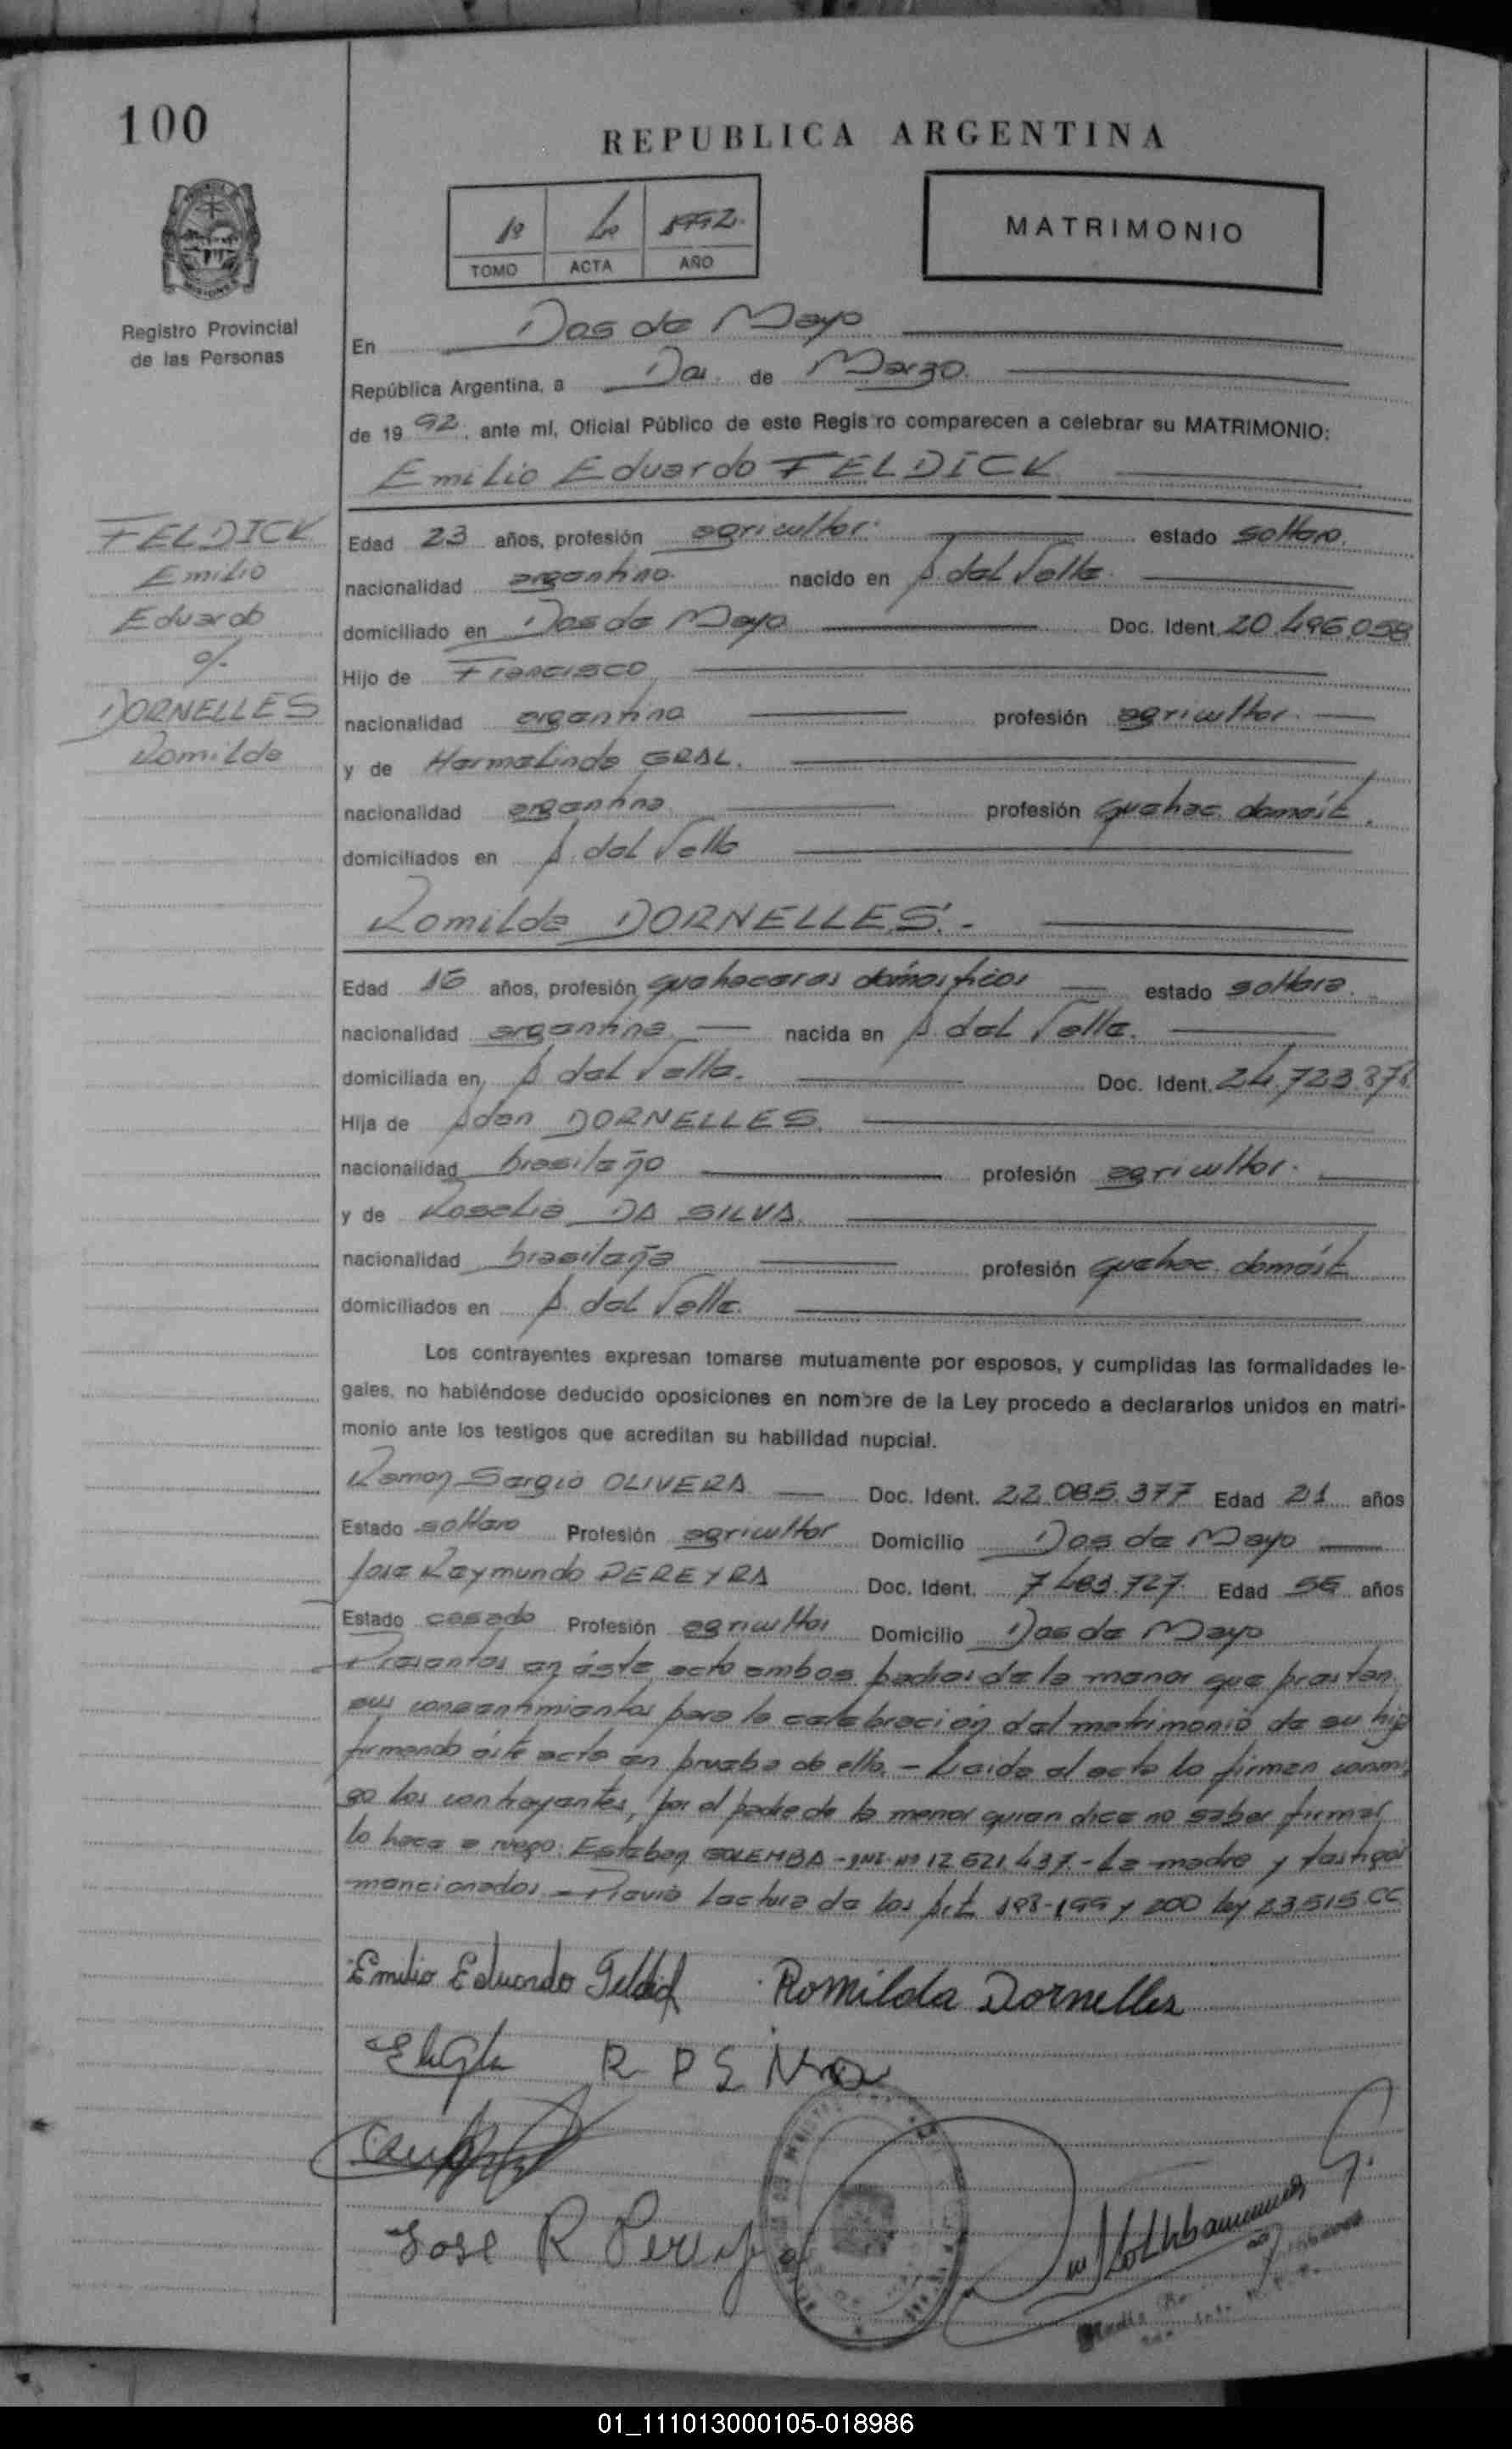 100
REPUBLICA ARGENTINA
1º 4º 1992.
TOMO ACTA AÑO
MATRIMONIO
Registro Provincial
de las Personas
En Dos de Mayo
República Argentina, a Dos de Marzo.
de 19 92, ante mí, Oficial Público de este Registro comparecen a celebrar su MATRIMONIO:
Emilio Eduardo FELDICK
FELDICK
Emilio
Eduardo
c/.
DORNELLES
Romilda
Edad 23 años, profesión agricultor. estado soltero.
nacionalidad argentino. nacido en A. del Valle.
domiciliado en Dos de Mayo Doc. Ident. 20.496.058
Hijo de Francisco
nacionalidad argentina profesión agricultor.
y de Hermelinda GRAL.
nacionalidad argentina profesión quehac. domést.
domiciliados en A. del Valle
Romilda DORNELLES.-
Edad años, profesión quehaceres domésticos estado soltera.
nacionalidad argentina nacida en A. del Valle.
domiciliada en A. del Valle. Doc. Ident. 24.723.
Hija de Adan DORNELLES
nacionalidad brasileño profesión agricultor.
y de Rosalia DA SILVA.
nacionalidad brasileña profesión quehac. domést
domiciliados en A. del Valle.
Los contrayentes expresan tomarse mutuamente por esposos, y cumplidas las formalidades le-
gales, no habiéndose deducido oposiciones en nombre de la Ley procedo a declararlos unidos en matri-
monio ante los testigos que acreditan su habilidad nupcial.
Ramon Sergio OLIVERA Doc. Ident. 22.085.377 Edad 21 años
Estado soltero Profesión agricultor Domicilio Dos de Mayo
Jose Raymundo PEREYRA Doc. Ident. 7.483.727. Edad 56 años
Estado casado Profesión agricultor Domicilio Dos de Mayo
Presentes en éste acto ambos padres de la menor que prestan
sus consentimientos para la celebración del matrimonio de su hija
firmando éste acto en prueba de ello.- Leida el acta la firman conmi-
go los contrayentes, por el padre de la menor quien dice no saber firmar
lo hace a ruego: Esteban GOLEMBA - DNI. Nº 12.621.437.- La madre y testigos
mencionados.- Previa lectura de los Art. 198-199 y 200 Ley 23.515 CC
Emilio Eduardo Feldick Romilda Dornelles
Jose R Pereyra
01_111013000105-018986